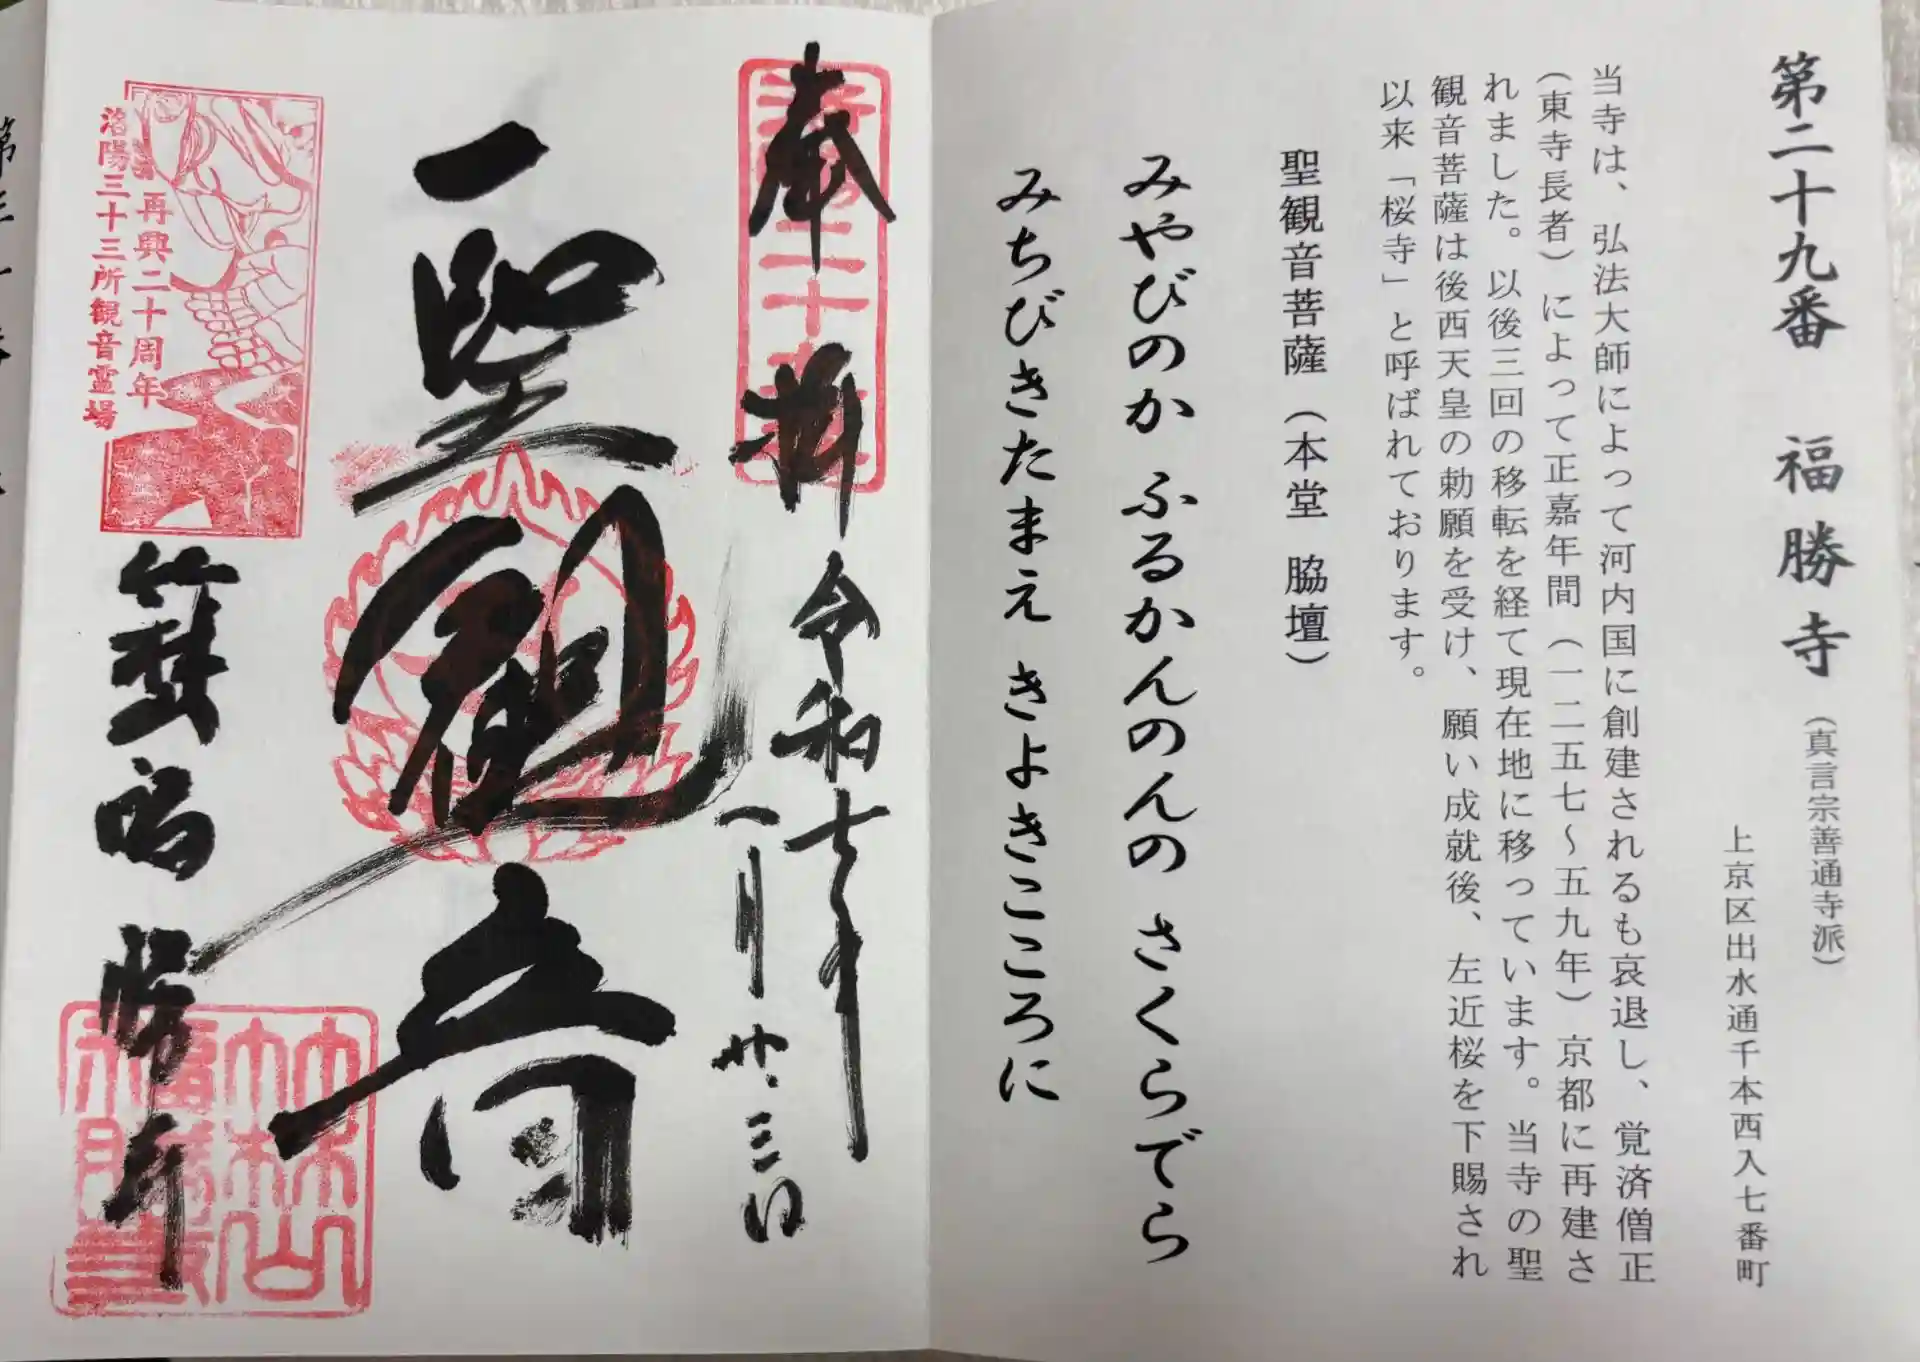 第二十九番　福勝寺（真言宗善通寺派）
上京区出水通千本西入七番町
当寺は、弘法大師によって河内国に創建されるも哀退し、覚済僧正
（東寺長者）によって正嘉年間（一二五七～五九年）京都に再建さ
れました。以後三回の移転を経て現在地に移っています。当寺の聖
観音菩薩は後西天皇の勅願を受け、願い成就後、左近桜を下賜され
以来「桜寺」と呼ばれております。
聖観音菩薩（本堂 脇壇）
みやびのか ふるかんのんの さくらでら
みちびきたまえ きよきこころに
奉
令和七年
一月廿三日
聖観音
再興二十周年
洛陽三十三所観音霊場
福勝寺
竹林山
福勝寺